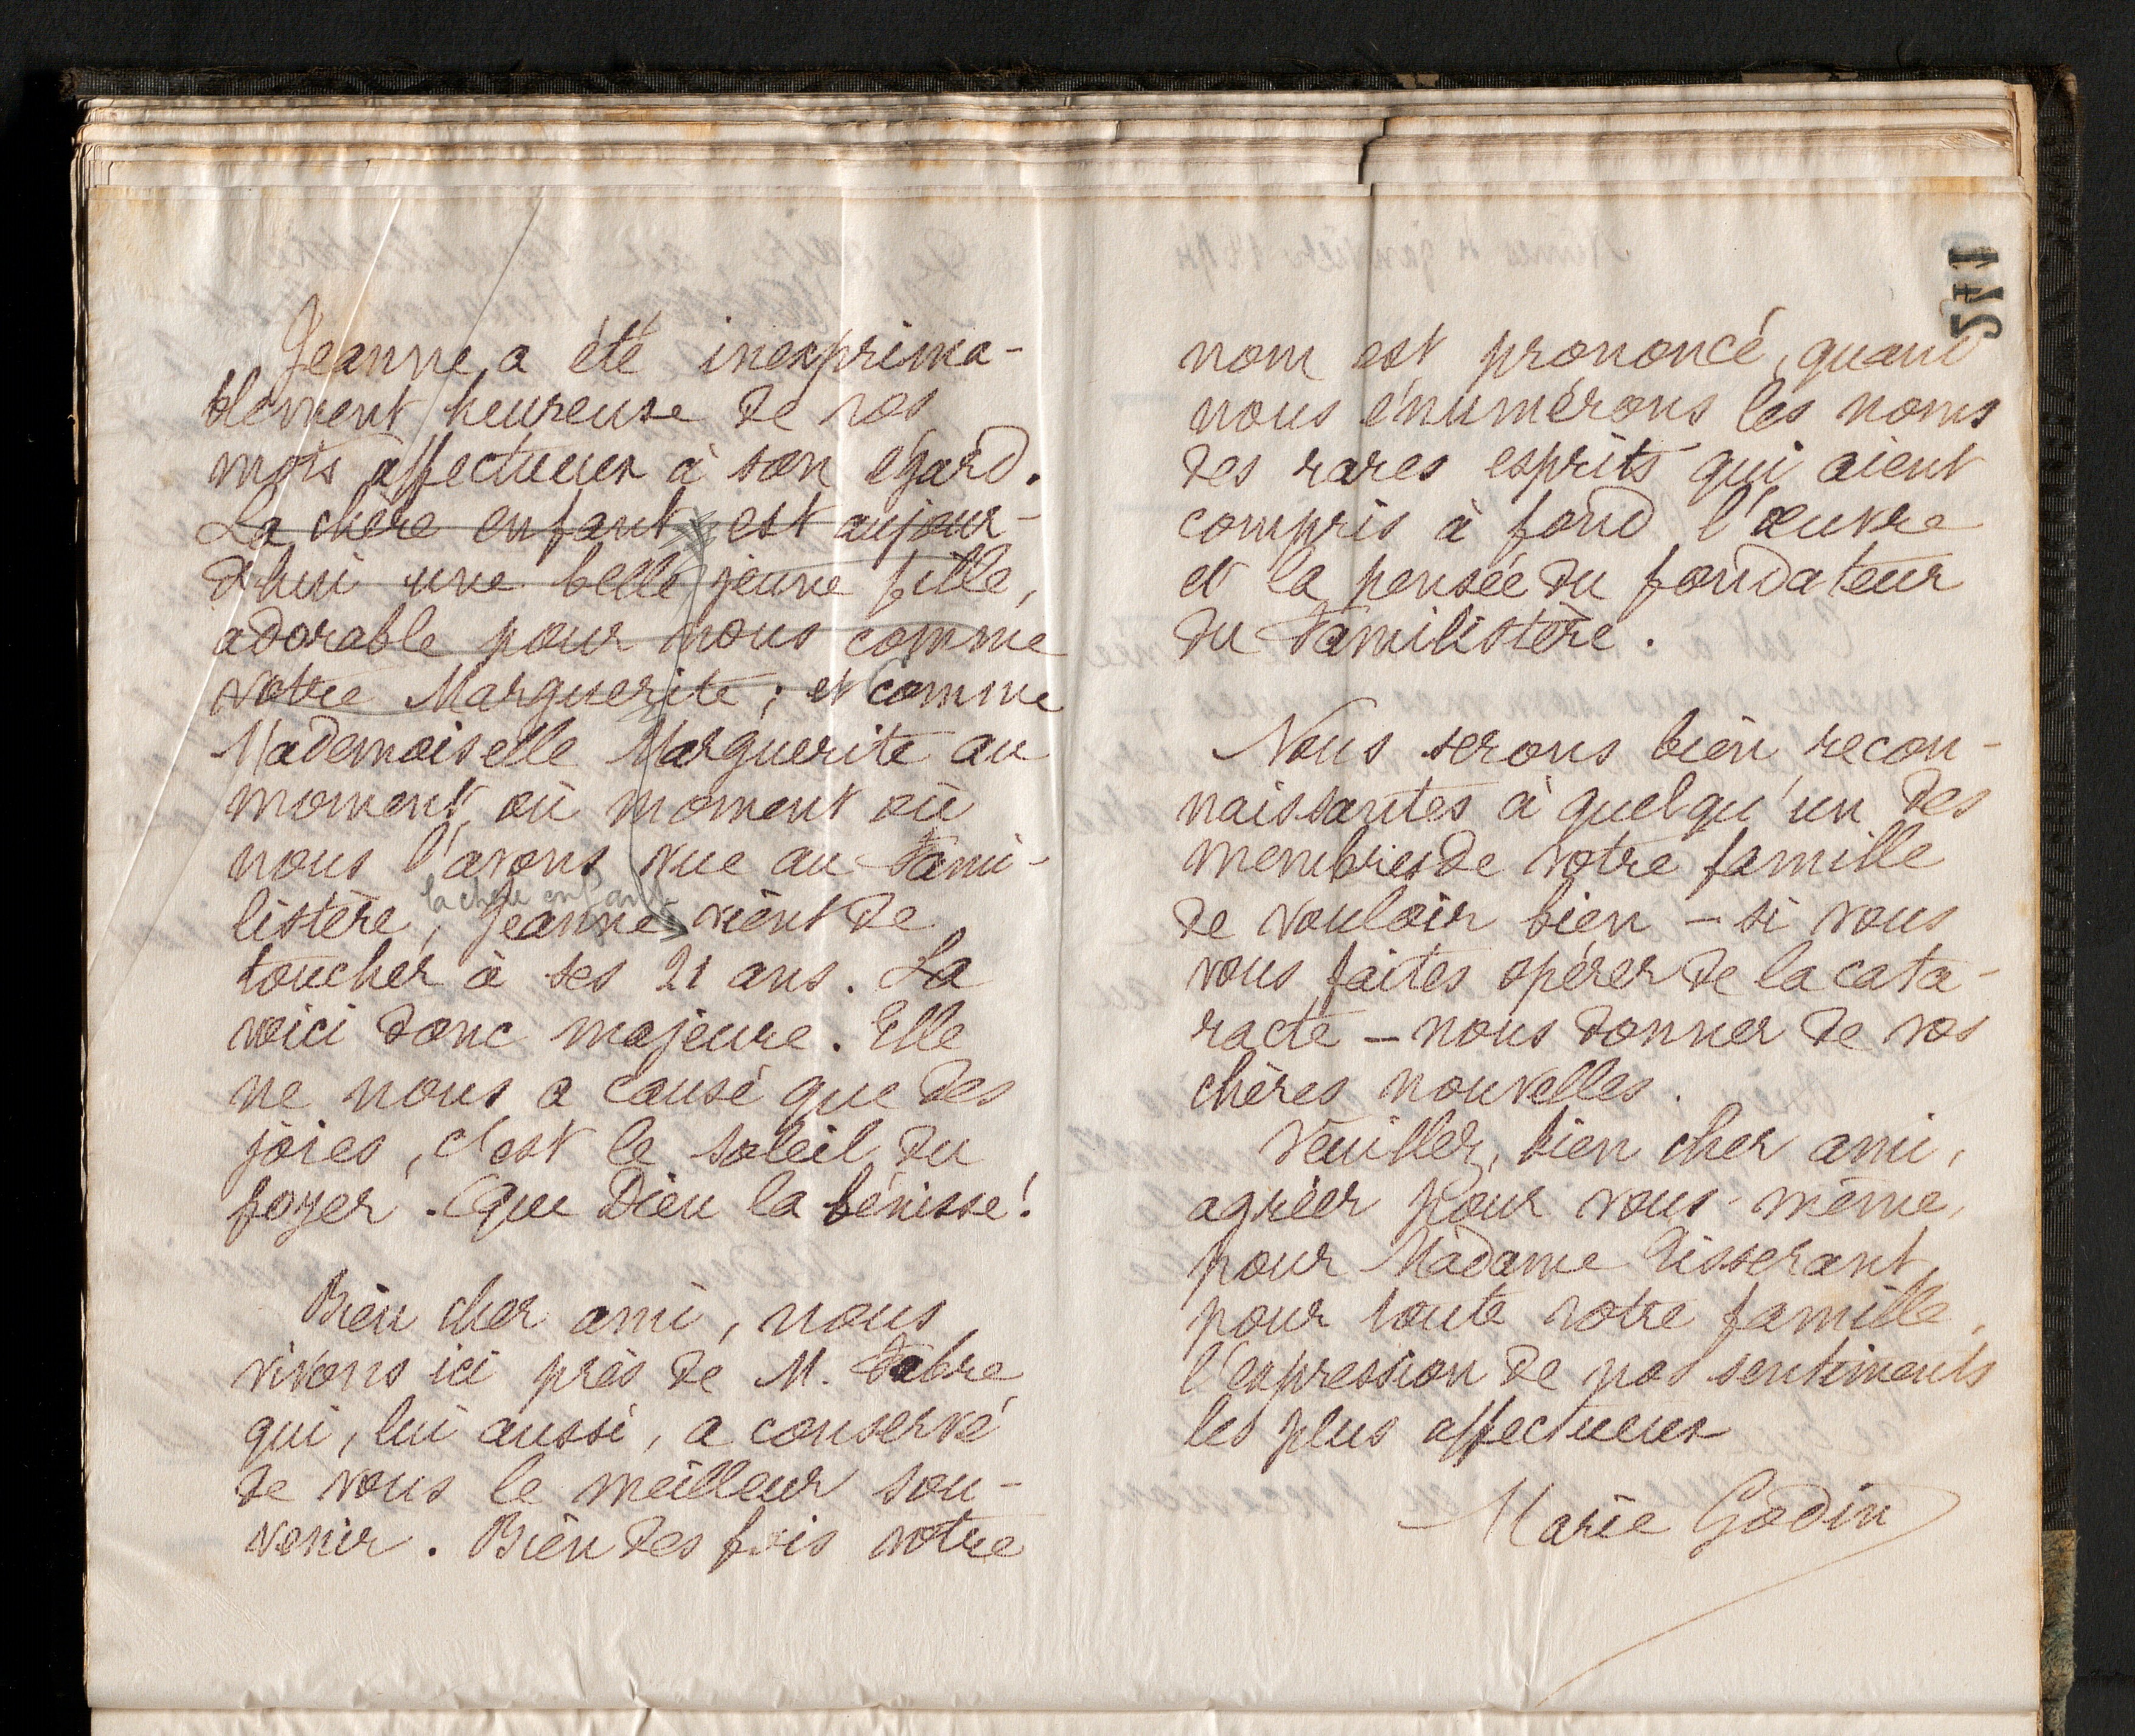 Jeanne a été inexprima-
blement heureuse de vos
mots affectueux à son égard.
La chère enfant est aujour-
d'hui une belle jeune fille,
adorable pour nous comme
votre Marguerite ; et comme
Mademoiselle Marguerite au
moment où moment où
nous l'avons vue au Fami-
la chère enfant
listère, Jeanne vient de
toucher à ses 21 ans. La
voici donc majeure. Elle
ne nous a causé que des
joies, c'est le soleil du
foyer. Que Dieu la bénisse!
Bien cher ami, nous
vivons ici près de M. Fabre
qui, lui aussi, a conservé
de vous le meilleur sou-
venir. Bien des fois votre
nom est prononcé, quand
nous énumérons les noms
des rares esprits qui aient
compris à fond l'œuvre
et la pensée du fondateur
du Familistère.
Nous serons bien recon-
naissantes à quelqu'un des
membres de votre famille
de vouloir bien – si vous
vous faites opérer de la cata-
racte – nous donner de vos
chères nouvelles.
Veuillez, bien cher ami,
agréer pour vous-même,
pour Madame Tisserant,
pour toute votre famille,
l'expression de nos sentiments
les plus affectueux
Marie Godin